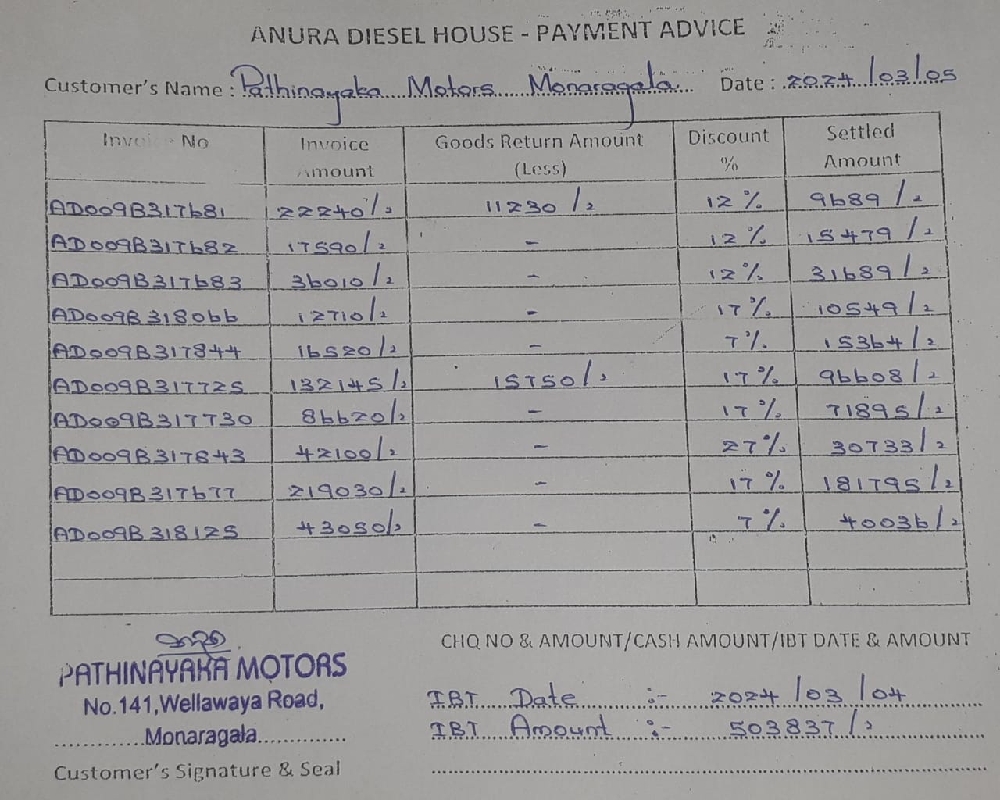 ANURA DIESEL HOUSE - PAYMENT ADVICE
Customer's Name : Pathinayaka Motors Monaragala. Date : 2024/03/05
Invoice No Invoice Amount Goods Return Amount (Less) Discount % Settled Amount
AD009B317681 22240/2 11230/2 12% 9689/2
AD009B317682 17590/2 - 12% 15479/2
AD009B317683 36010/2 - 12% 31689/2
AD009B318066 12710/2 - 17% 10549/2
AD009B317844 16520/2 - 7% 15364/2
AD009B317725 132145/2 15750/2 17% 96608/2
AD009B317730 86620/2 - 17% 71895/2
AD009B317843 42100/2 - 27% 30733/2
AD009B317677 219030/2 - 17% 181795/2
AD009B318125 43050/2 - 7% 40036/2
CHQ NO & AMOUNT/CASH AMOUNT/IBT DATE & AMOUNT
PATHINAYAKA MOTORS
No.141,Wellawaya Road,
Monaragala
IBT Date :- 2024/03/04
IBT Amount :- 503837/2
Customer's Signature & Seal